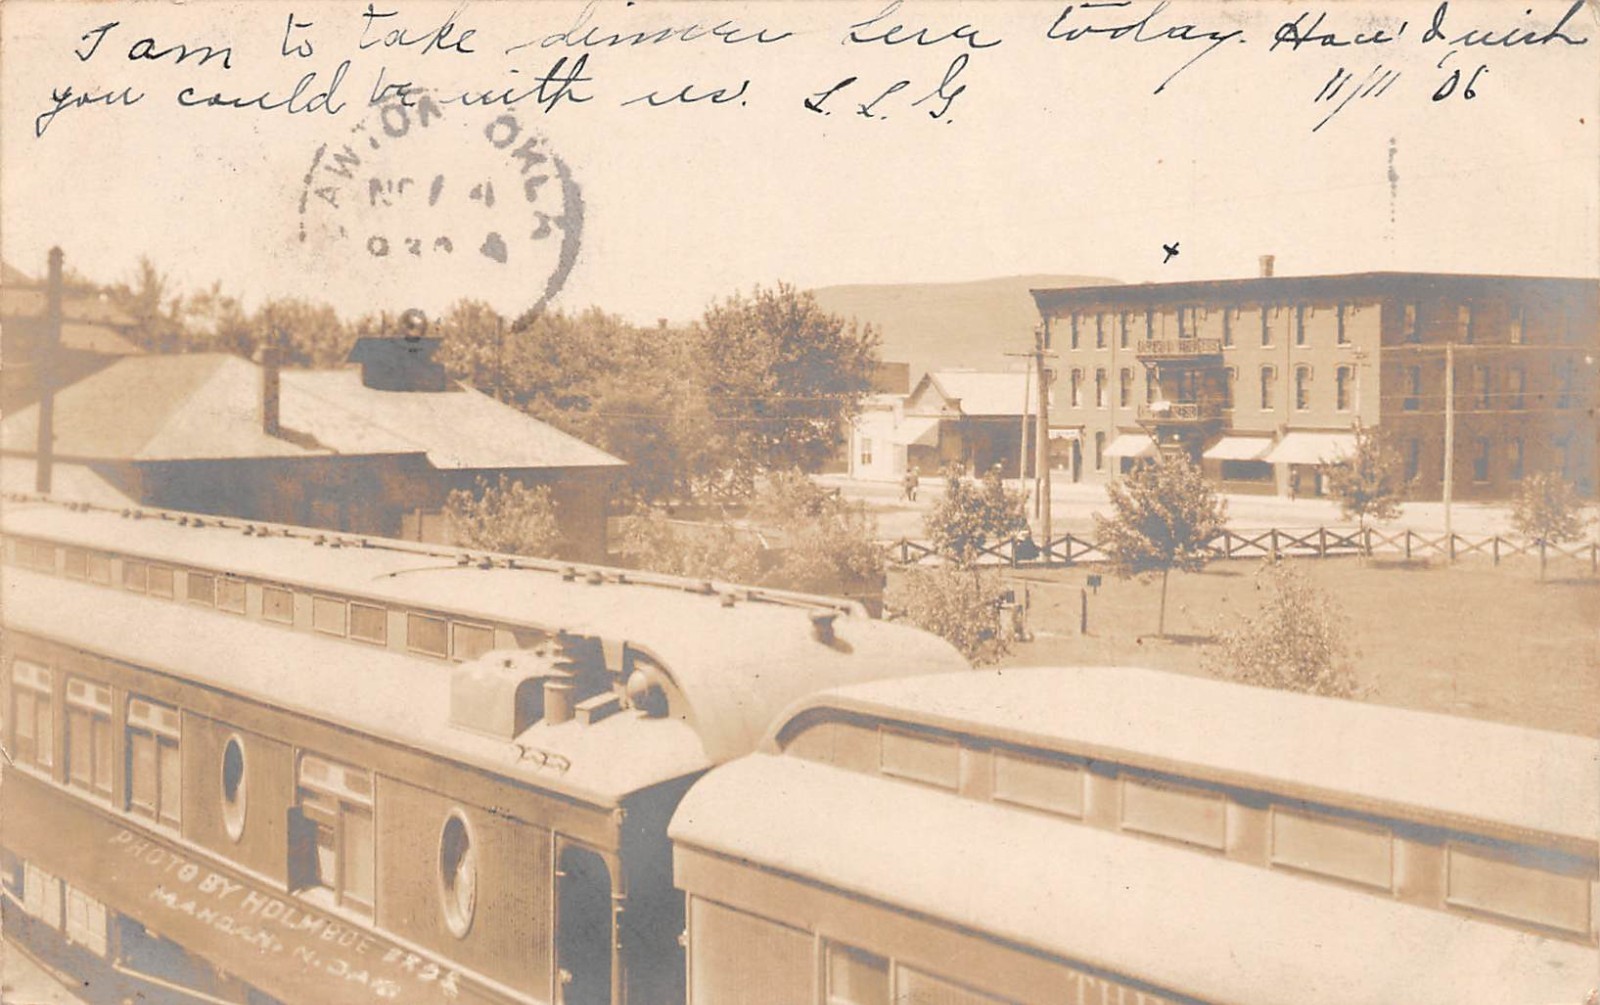 I am to take dinner here today. How I wish
you could be with us. L. L. G. 11/11 06
LAWTON OKLA
NOV 14
PHOTO BY HOLMBOE BROS
MANDAN, N. DAK